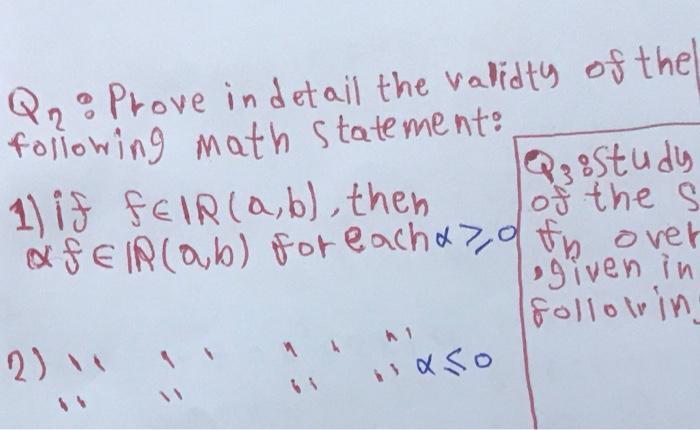 Q2: Prove in detail the validty of the
following math statement:
1) if f∈IR(a,b), then
αf∈IR(a,b) for each α≥0
2) " " " " "
" " " " α≤0
Q3: Study
of the S
fn over
, given in
followin